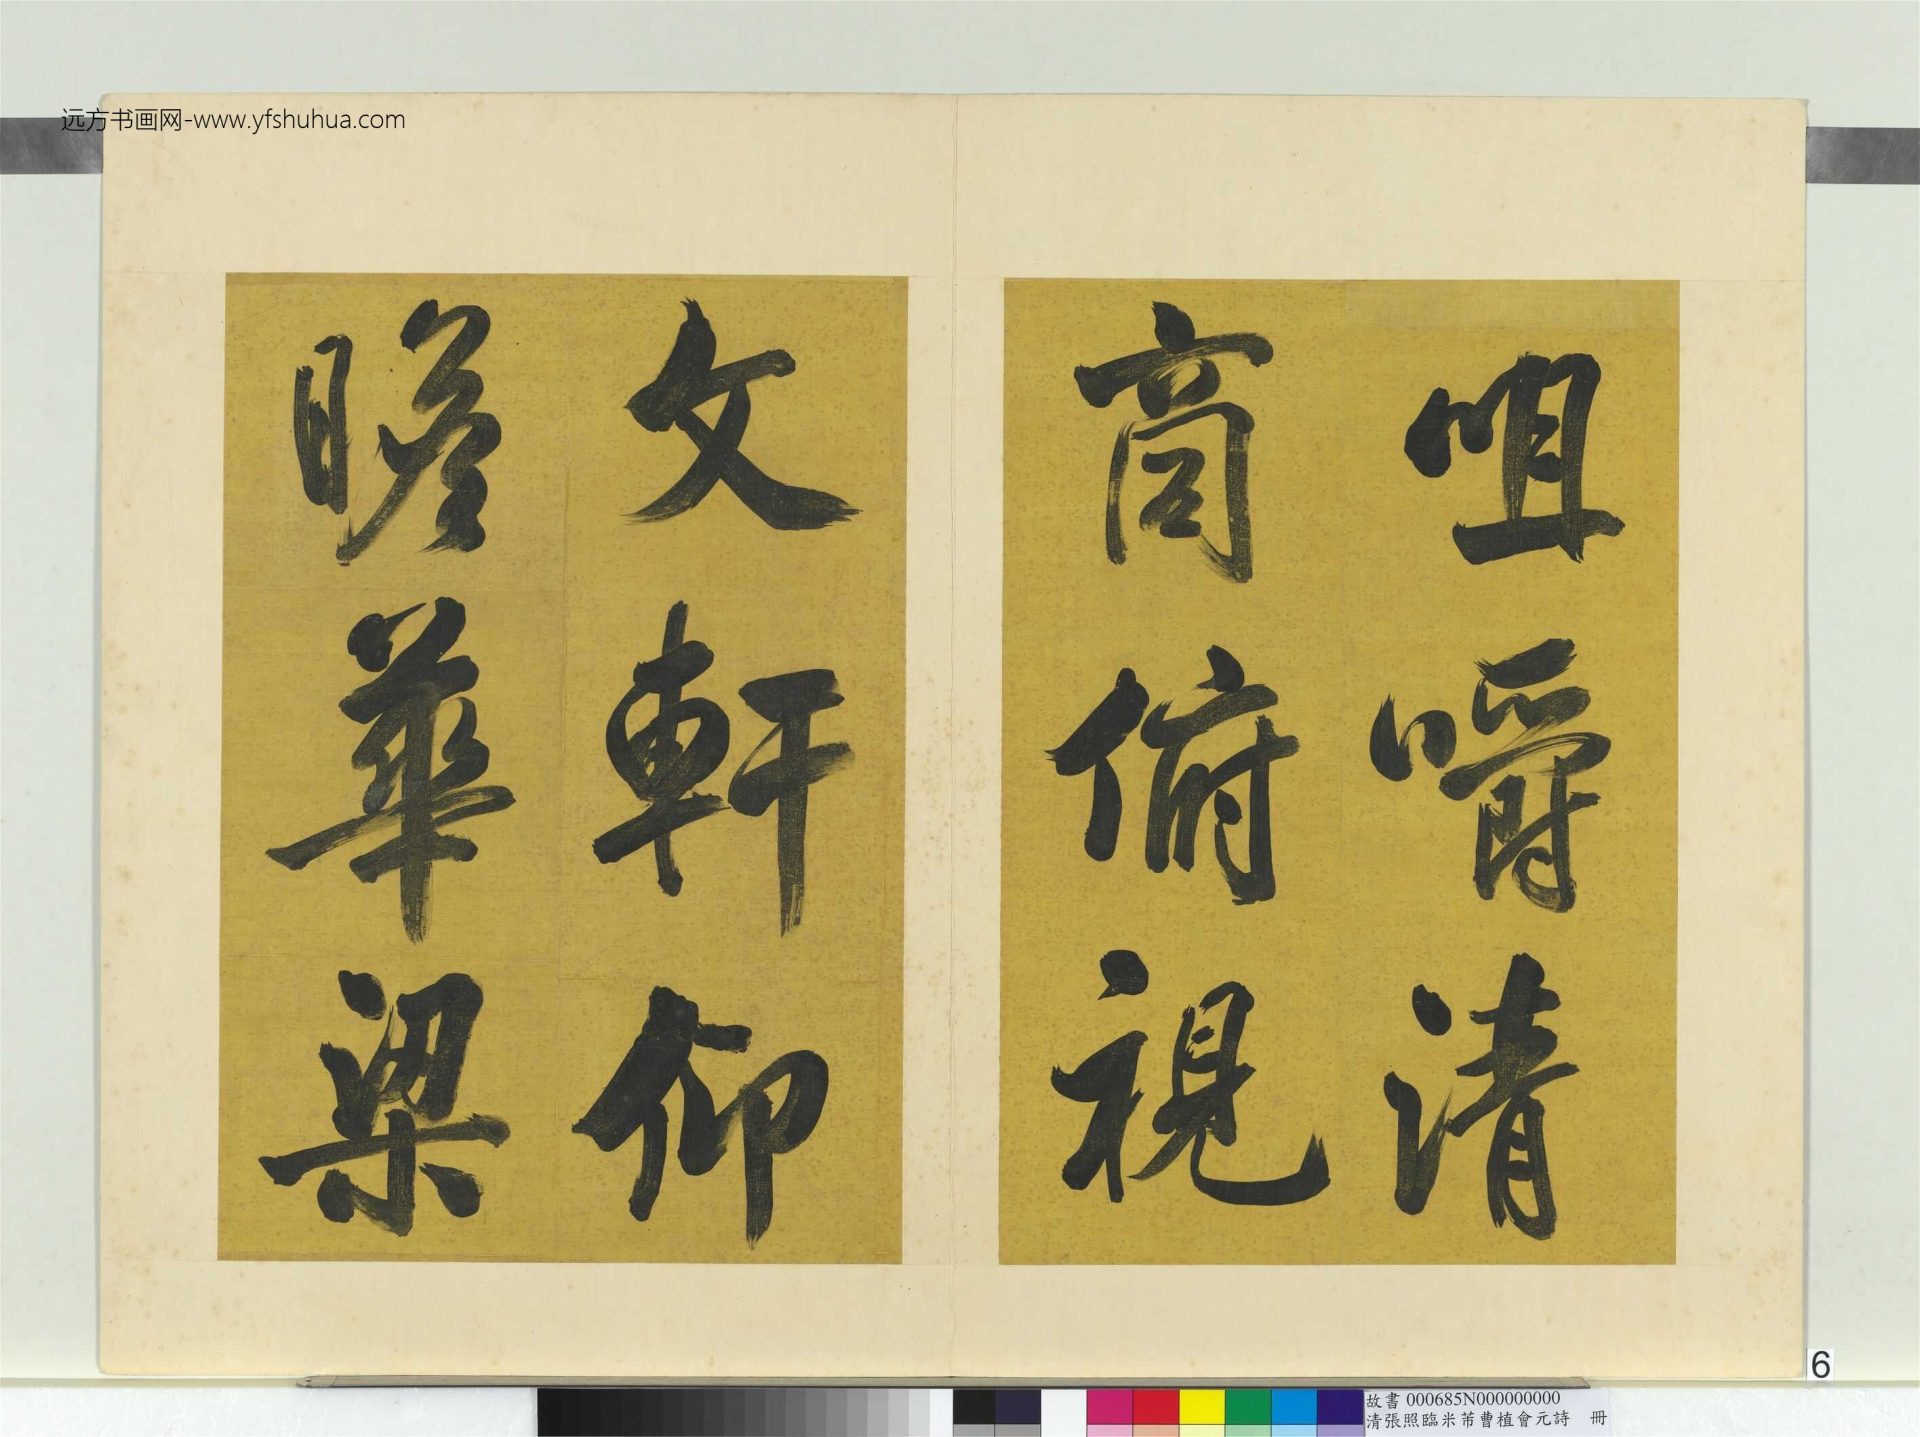 远方书画网-www.yfshuhua.com
咀嚼清
商俯視
文軒仰
瞻華梁
6
故書 000685N000000000
清張照臨米芾曹植會元詩 冊